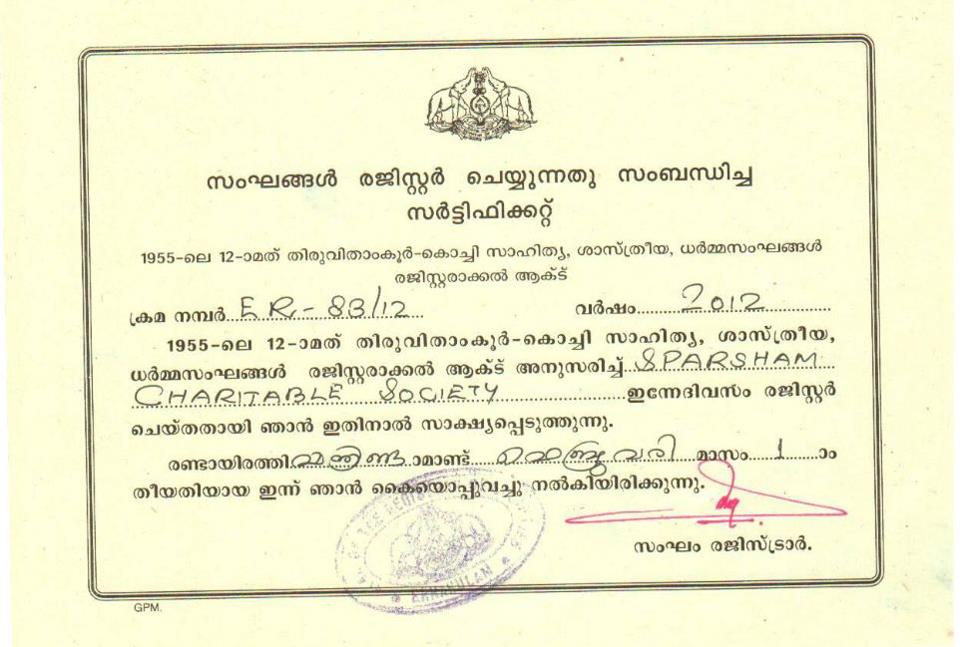 സംഘങ്ങൾ രജിസ്റ്റർ ചെയ്യുന്നതു സംബന്ധിച്ച
സർട്ടിഫിക്കറ്റ്
1955-ലെ 12-ാമത് തിരുവിതാംകൂർ-കൊച്ചി സാഹിത്യ, ശാസ്ത്രീയ, ധർമ്മസംഘങ്ങൾ
രജിസ്റ്ററാക്കൽ ആക്ട്
ക്രമ നമ്പർ ER-83/12 വർഷം 2012
1955-ലെ 12-ാമത് തിരുവിതാംകൂർ-കൊച്ചി സാഹിത്യ, ശാസ്ത്രീയ,
ധർമ്മസംഘങ്ങൾ രജിസ്റ്ററാക്കൽ ആക്ട് അനുസരിച്ച് SPARSHAM
CHARITABLE SOCIETY ഇന്നേദിവസം രജിസ്റ്റർ
ചെയ്തതായി ഞാൻ ഇതിനാൽ സാക്ഷ്യപ്പെടുത്തുന്നു.
രണ്ടായിരത്തി ാമാണ്ട് ഫെബ്രുവരി മാസം 1 ാം
തീയതിയായ ഇന്ന് ഞാൻ കൈയൊപ്പുവച്ചു നൽകിയിരിക്കുന്നു.
സംഘം രജിസ്ട്രാർ.
ERNAKULAM
GPM.